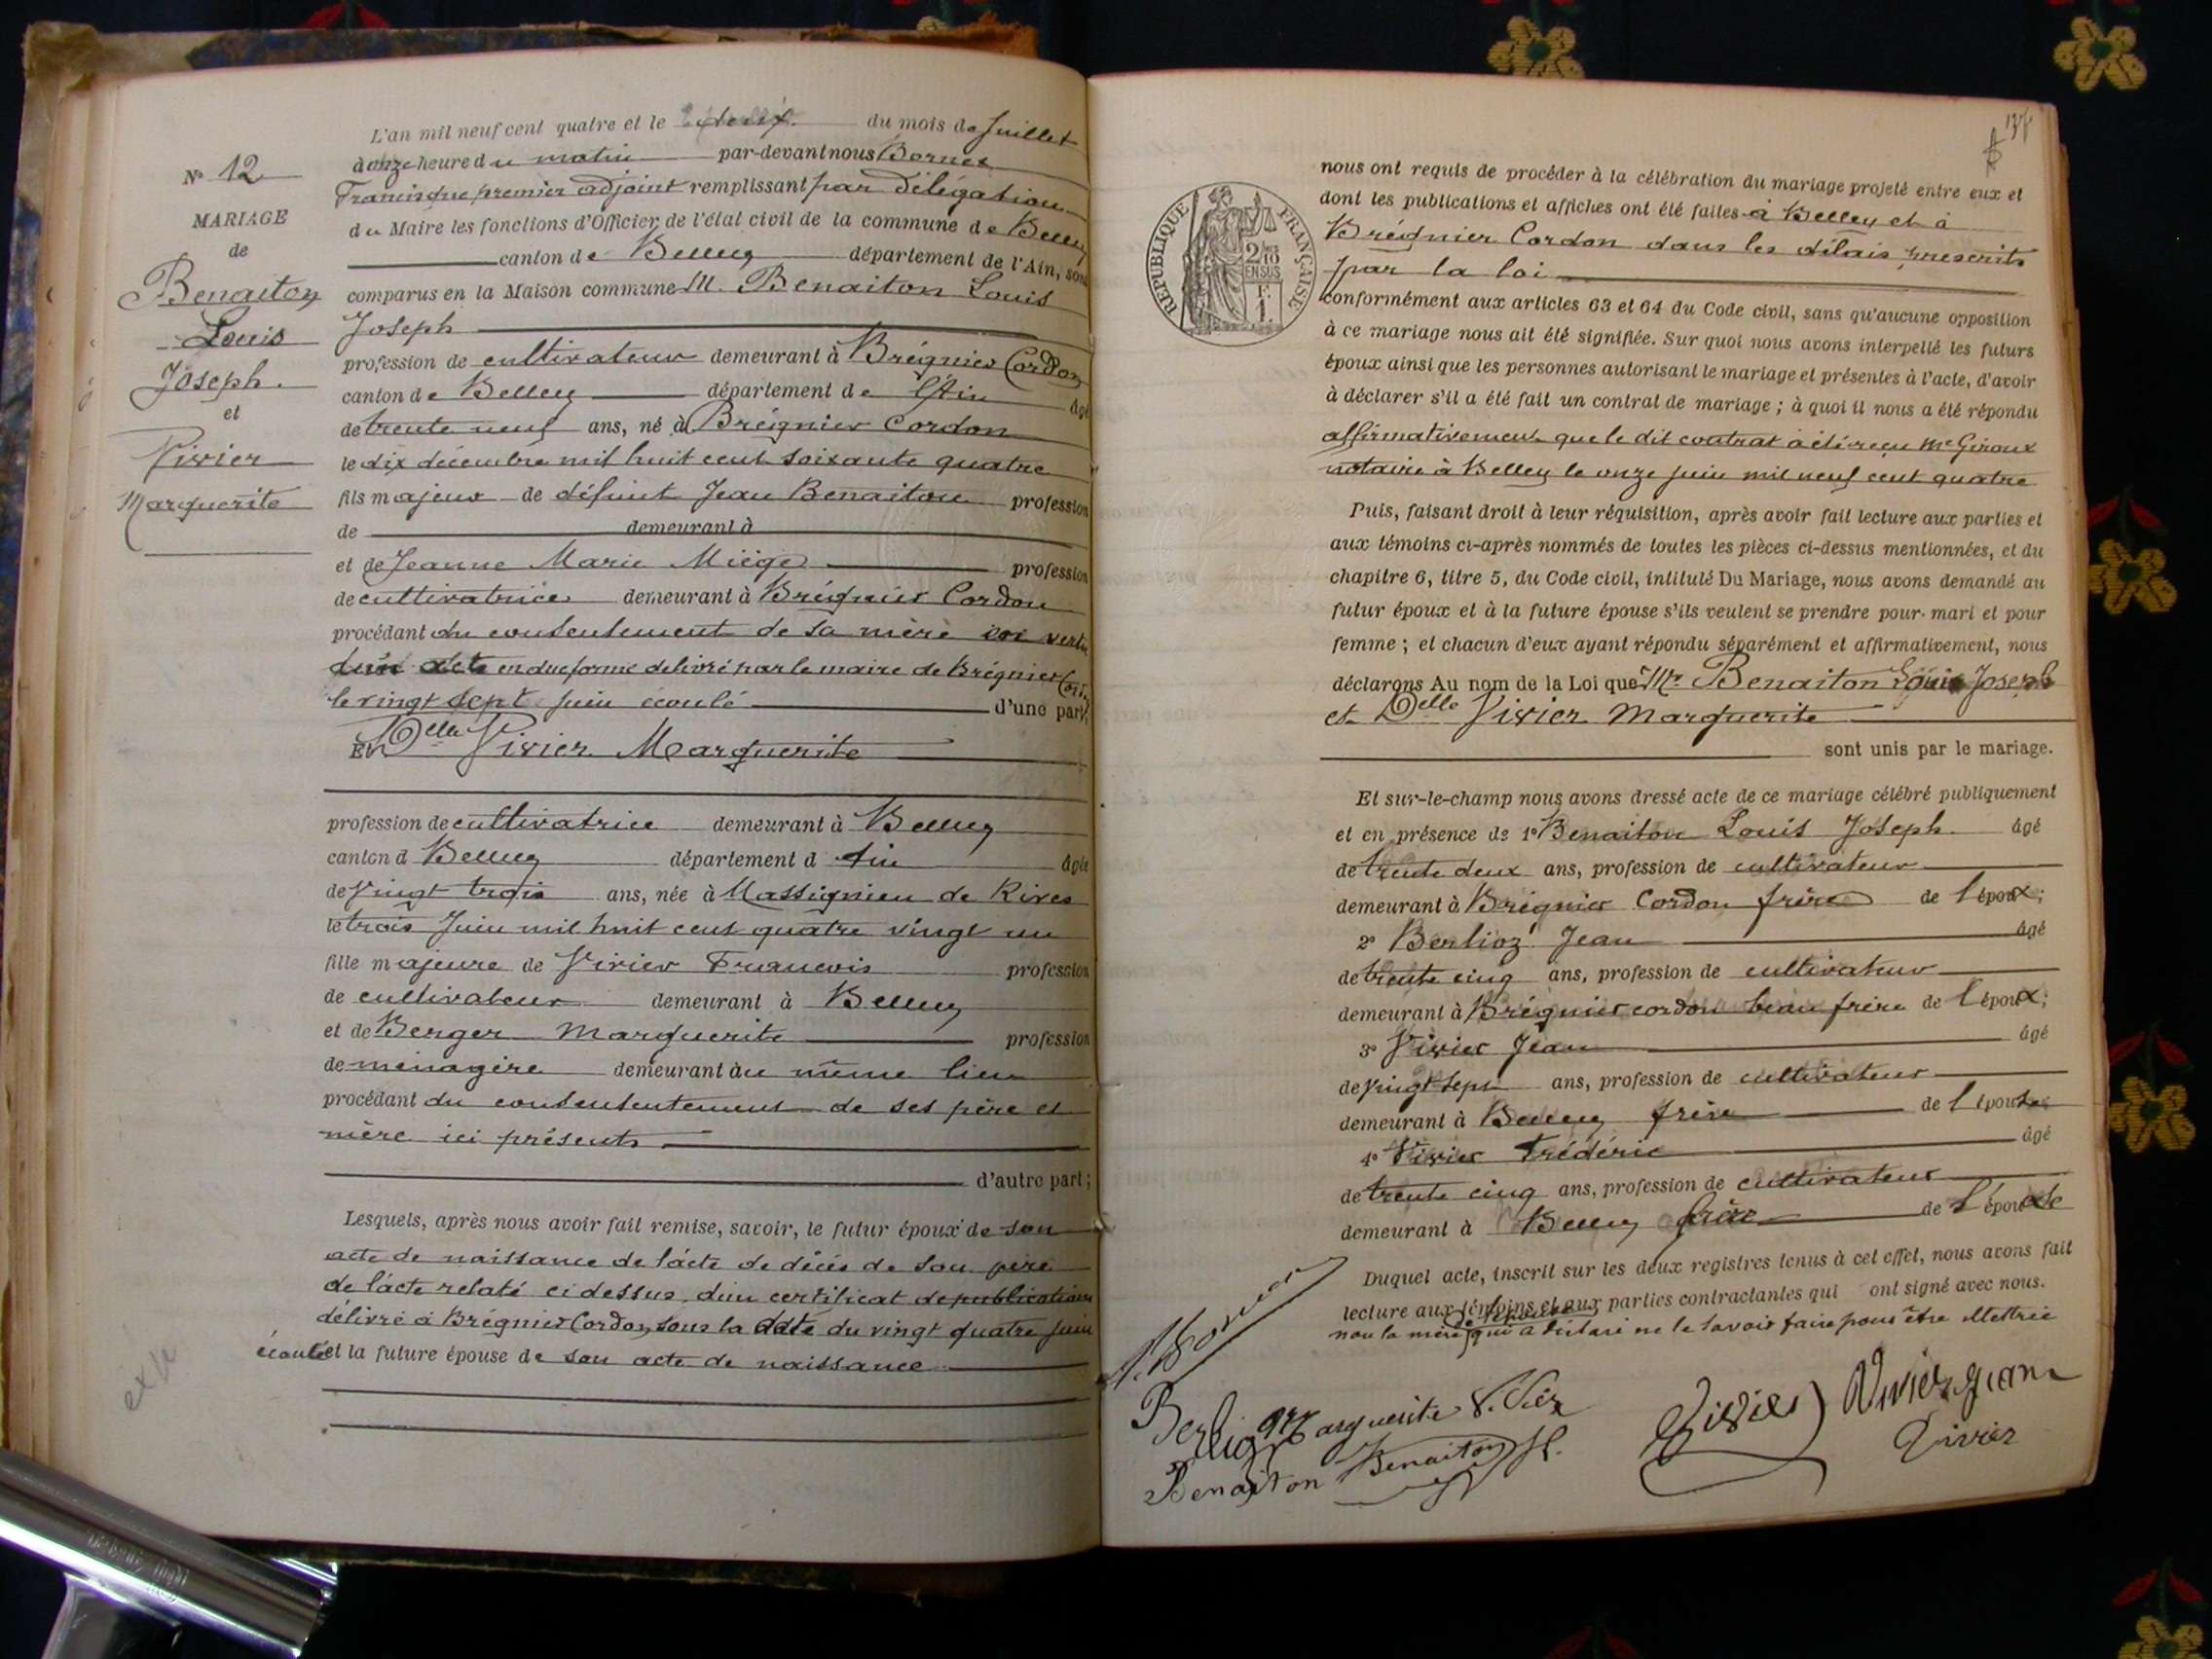 N° 12
MARIAGE
de
Benaiton
Louis
Joseph.
et
Vivier
Marguerite
L'an mil neuf cent quatre et le du mois de Juillet
à onze heure du matin par-devant nous Bornex
Francisque premier adjoint remplissant par délégation
du Maire les fonctions d'Officier de l'état civil de la commune de Belley
canton de Belley département de l'Ain, sont
comparus en la Maison commune M. Benaiton Louis
Joseph
profession de cultivateur demeurant à Brégnier Cordon
canton de Belley département de l'Ain âgé
de trente neuf ans, né à Brégnier Cordon
le dix décembre mil huit cent soixante quatre
fils majeur de défunt Jean Benaiton profession
de demeurant à
et de Jeanne Marie Miège profession
de cultivatrice demeurant à Brégnier Cordon
procédant du consentement de sa mère en vertu
d'un acte en due forme délivré par le maire de Brégnier Cord.
le vingt sept juin écoulé d'une part,
Et Delle Vivier Marguerite
profession de cultivatrice demeurant à Belley
canton d Belley département d Ain âgée
de vingt trois ans, née à Massignieu de Rives
le trois Juin mil huit cent quatre vingt un
fille majeure de Vivier Francois profession
de cultivateur demeurant à Belley
et de Berger Marguerite profession
de ménagère demeurant au même lieu
procédant du consentement de ses père et
mère ici présents
d'autre part;
Lesquels, après nous avoir fait remise, savoir, le futur époux de son
acte de naissance de l'acte de décès de son père
de l'acte relaté ci dessus, d'un certificat de publication
délivré à Brégnier Cordon, sous la date du vingt quatre juin
écoulé et la future épouse de son acte de naissance
RÉPUBLIQUE FRANÇAISE
2/10
EN SUS
1 F.
nous ont requis de procéder à la célébration du mariage projeté entre eux et
dont les publications et affiches ont été faites à Belley et à
Brégnier Cordon dans les délais prescrits
par la loi
conformément aux articles 63 et 64 du Code civil, sans qu'aucune opposition
à ce mariage nous ait été signifiée. Sur quoi nous avons interpellé les futurs
époux ainsi que les personnes autorisant le mariage et présentes à l'acte, d'avoir
à déclarer s'il a été fait un contrat de mariage ; à quoi il nous a été répondu
affirmativement que le dit contrat a été reçu Me Giroux
notaire à Belley le onze juin mil neuf cent quatre
Puis, faisant droit à leur réquisition, après avoir fait lecture aux parties et
aux témoins ci-après nommés de toutes les pièces ci-dessus mentionnées, et du
chapitre 6, titre 5, du Code civil, intitulé Du Mariage, nous avons demandé au
futur époux et à la future épouse s'ils veulent se prendre pour mari et pour
femme ; et chacun d'eux ayant répondu séparément et affirmativement, nous
déclarons Au nom de la Loi que Mr Benaiton Louis Joseph
et Delle Vivier Marguerite
sont unis par le mariage.
Et sur-le-champ nous avons dressé acte de ce mariage célébré publiquement
et en présence de 1° Benaiton Louis Joseph âgé
de trente deux ans, profession de cultivateur
demeurant à Brégnier Cordon frère de l'époux;
2° Berlioz Jean âgé
de trente cinq ans, profession de cultivateur
demeurant à Brégnier cordon beau frère de l'époux;
3° Vivier Jean âgé
de vingt sept ans, profession de cultivateur
demeurant à Belley frère de l'épouse
4° Vivier Frédéric âgé
de trente cinq ans, profession de cultivateur
demeurant à Belley frère de l'épouse
Duquel acte, inscrit sur les deux registres tenus à cet effet, nous avons fait
lecture aux témoins et aux parties contractantes qui ont signé avec nous.
de l'épouse
non la mère qui a déclaré ne le savoir faire pour être illettrée
Marguerite Vivier
Vivier Vivier Jean
Benaiton Benaiton
Vivier